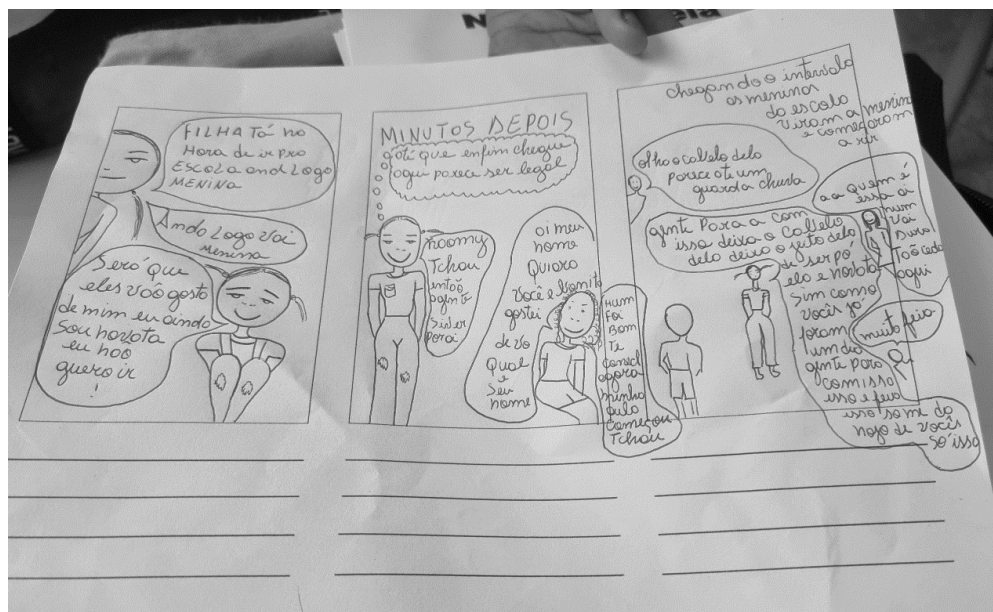 FILHA Tá na
Hora de ir pra
ESCOLA anda Logo
MENINA
Anda Logo Vai
Menina
Será que
eles vão gosta
de mim eu ainda
Sou novata
eu não
quero ir
!
MINUTOS DEPOIS
até que enfim chegue
aqui parece ser legal
Tchau
então
agente
oi meu
nome
Quiara
você é bonita
gostei
de vo
Qual
é
Seu
nome
Hum
foi
Bom
Te
conecê
agora
minha
aula
começou
Tchau
chegando o intervalo
os meninos
da escola
viram a menina
e começaram
a rir
olha o cabelo dela
parece até um
guarda chuva
aa Quem é
essa ai
hum
Vai
gente Para a com
isso deixa o cabelo
dela deixa o jeito dela
de ser pó
ela é novata
Sim como
vocês já
foram
um dia
gente para
com isso
isso é feio
isso só me da
nojo de vocês
Só isso
muito feia